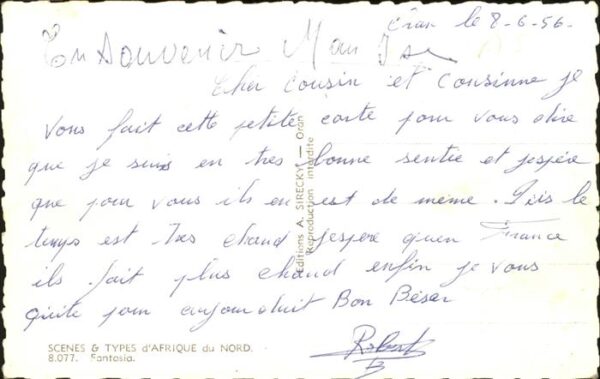 Oran le 8-6-56-
En Souvenir
Cher Cousin et Cousinne je
vous fait cette petite carte pour vous dire
que je suis en très bonne sentie et jespère
que pour vous ils en est de même. Isis le
temps est très chaud jespere quen France
ils fait plus chaud enfin je vous
quite pour aujourduit Bon Béser
Robert
B
Editions A. SIRECKY — Oran
Reproduction interdite
SCENES & TYPES d'AFRIQUE du NORD.
8.077. Fantasia.